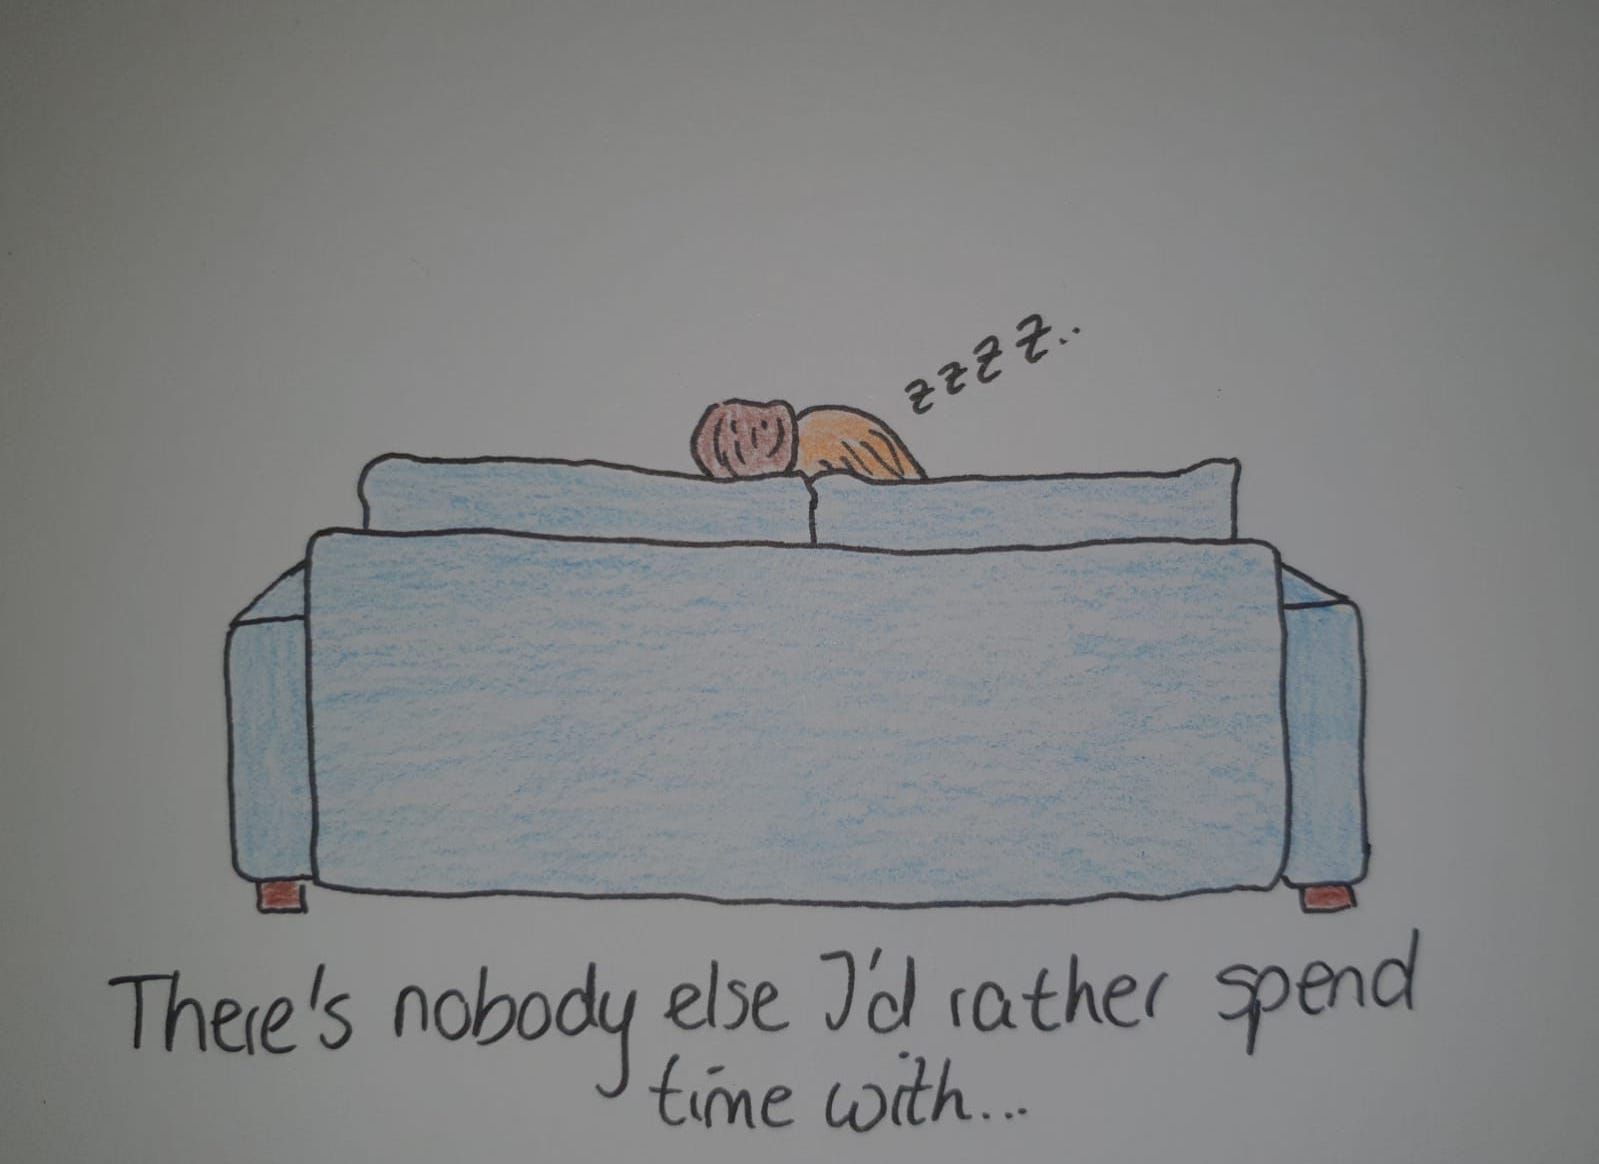 zzzz..
There's nobody else I'd rather spend
time with...